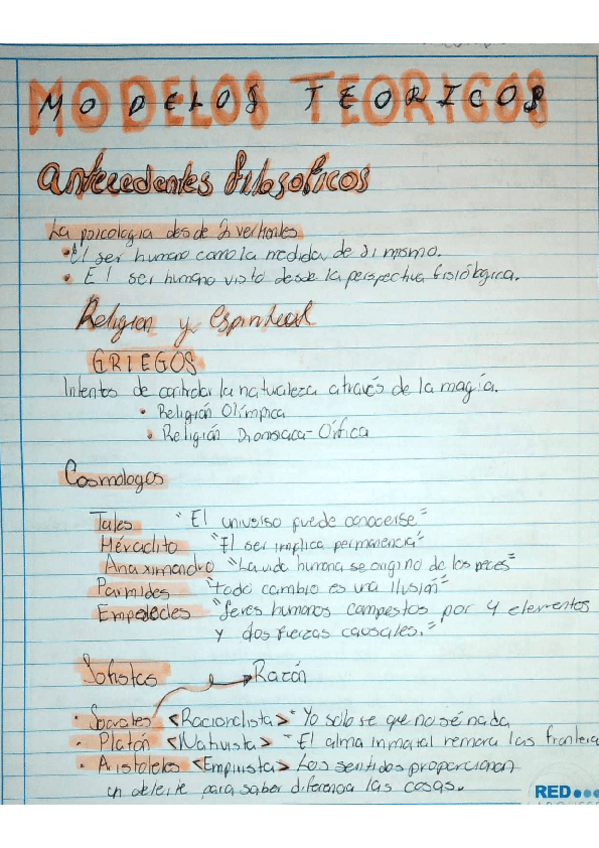 MODELOS TEORICOS
Antecedentes filosoficos
La psicologia desde 2 vertientes
• El ser humano como la medida de si mismo.
• El ser humano visto desde la perspectiva fisiológica.
Religion y espiritual
GRIEGOS
Intentos de controla la naturaleza através de la magía.
• Religión Olímpica
• Religión Dionisiaca-Orfica
Cosmologos
Tales "El universo puede conocerse."
Héraclito "El ser implica permanencia"
Anaximandro "La vida humana se origino de los peces"
Parmides "todo cambio es una ilusión"
Empedecles "Seres humanos compestos por 4 elementos
y dos fuerzas causales."
Sofistas → Razón
• Socrates <Racionalista> "Yo solo se que no sé nada
• Platón <Nativista> "El alma inmatal remora las frontera
• Aristoteles <Empirista> Los sentidos proporcionan
un deleite para saber diferencia las cosas.
RED